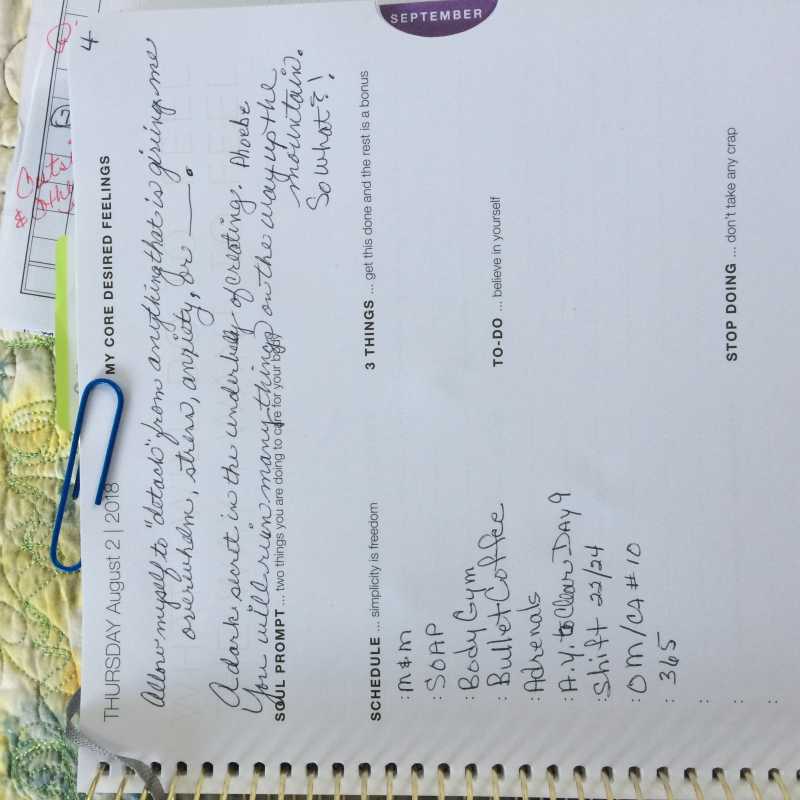 SEPTEMBER
4
THURSDAY August 2 | 2018
MY CORE DESIRED FEELINGS
Allow myself to "detach" from anything that is giving me
overwhelm, stress, anxiety, or ___.
A dark secret in the underbelly of creating. Phoebe
You will ruin many things on the way up the
mountain.
So what!
SOUL PROMPT ... two things you are doing to care for your body
SCHEDULE ... simplicity is freedom
: M&M
: SOAP
: Body Gym
: Bullet Coffee
: Adrenals
: A.Y. to Clear DAY 9
: Shift 22/24
: OM/CA #10
: 365
3 THINGS ... get this done and the rest is a bonus
TO-DO ... believe in yourself
STOP DOING ... don't take any crap